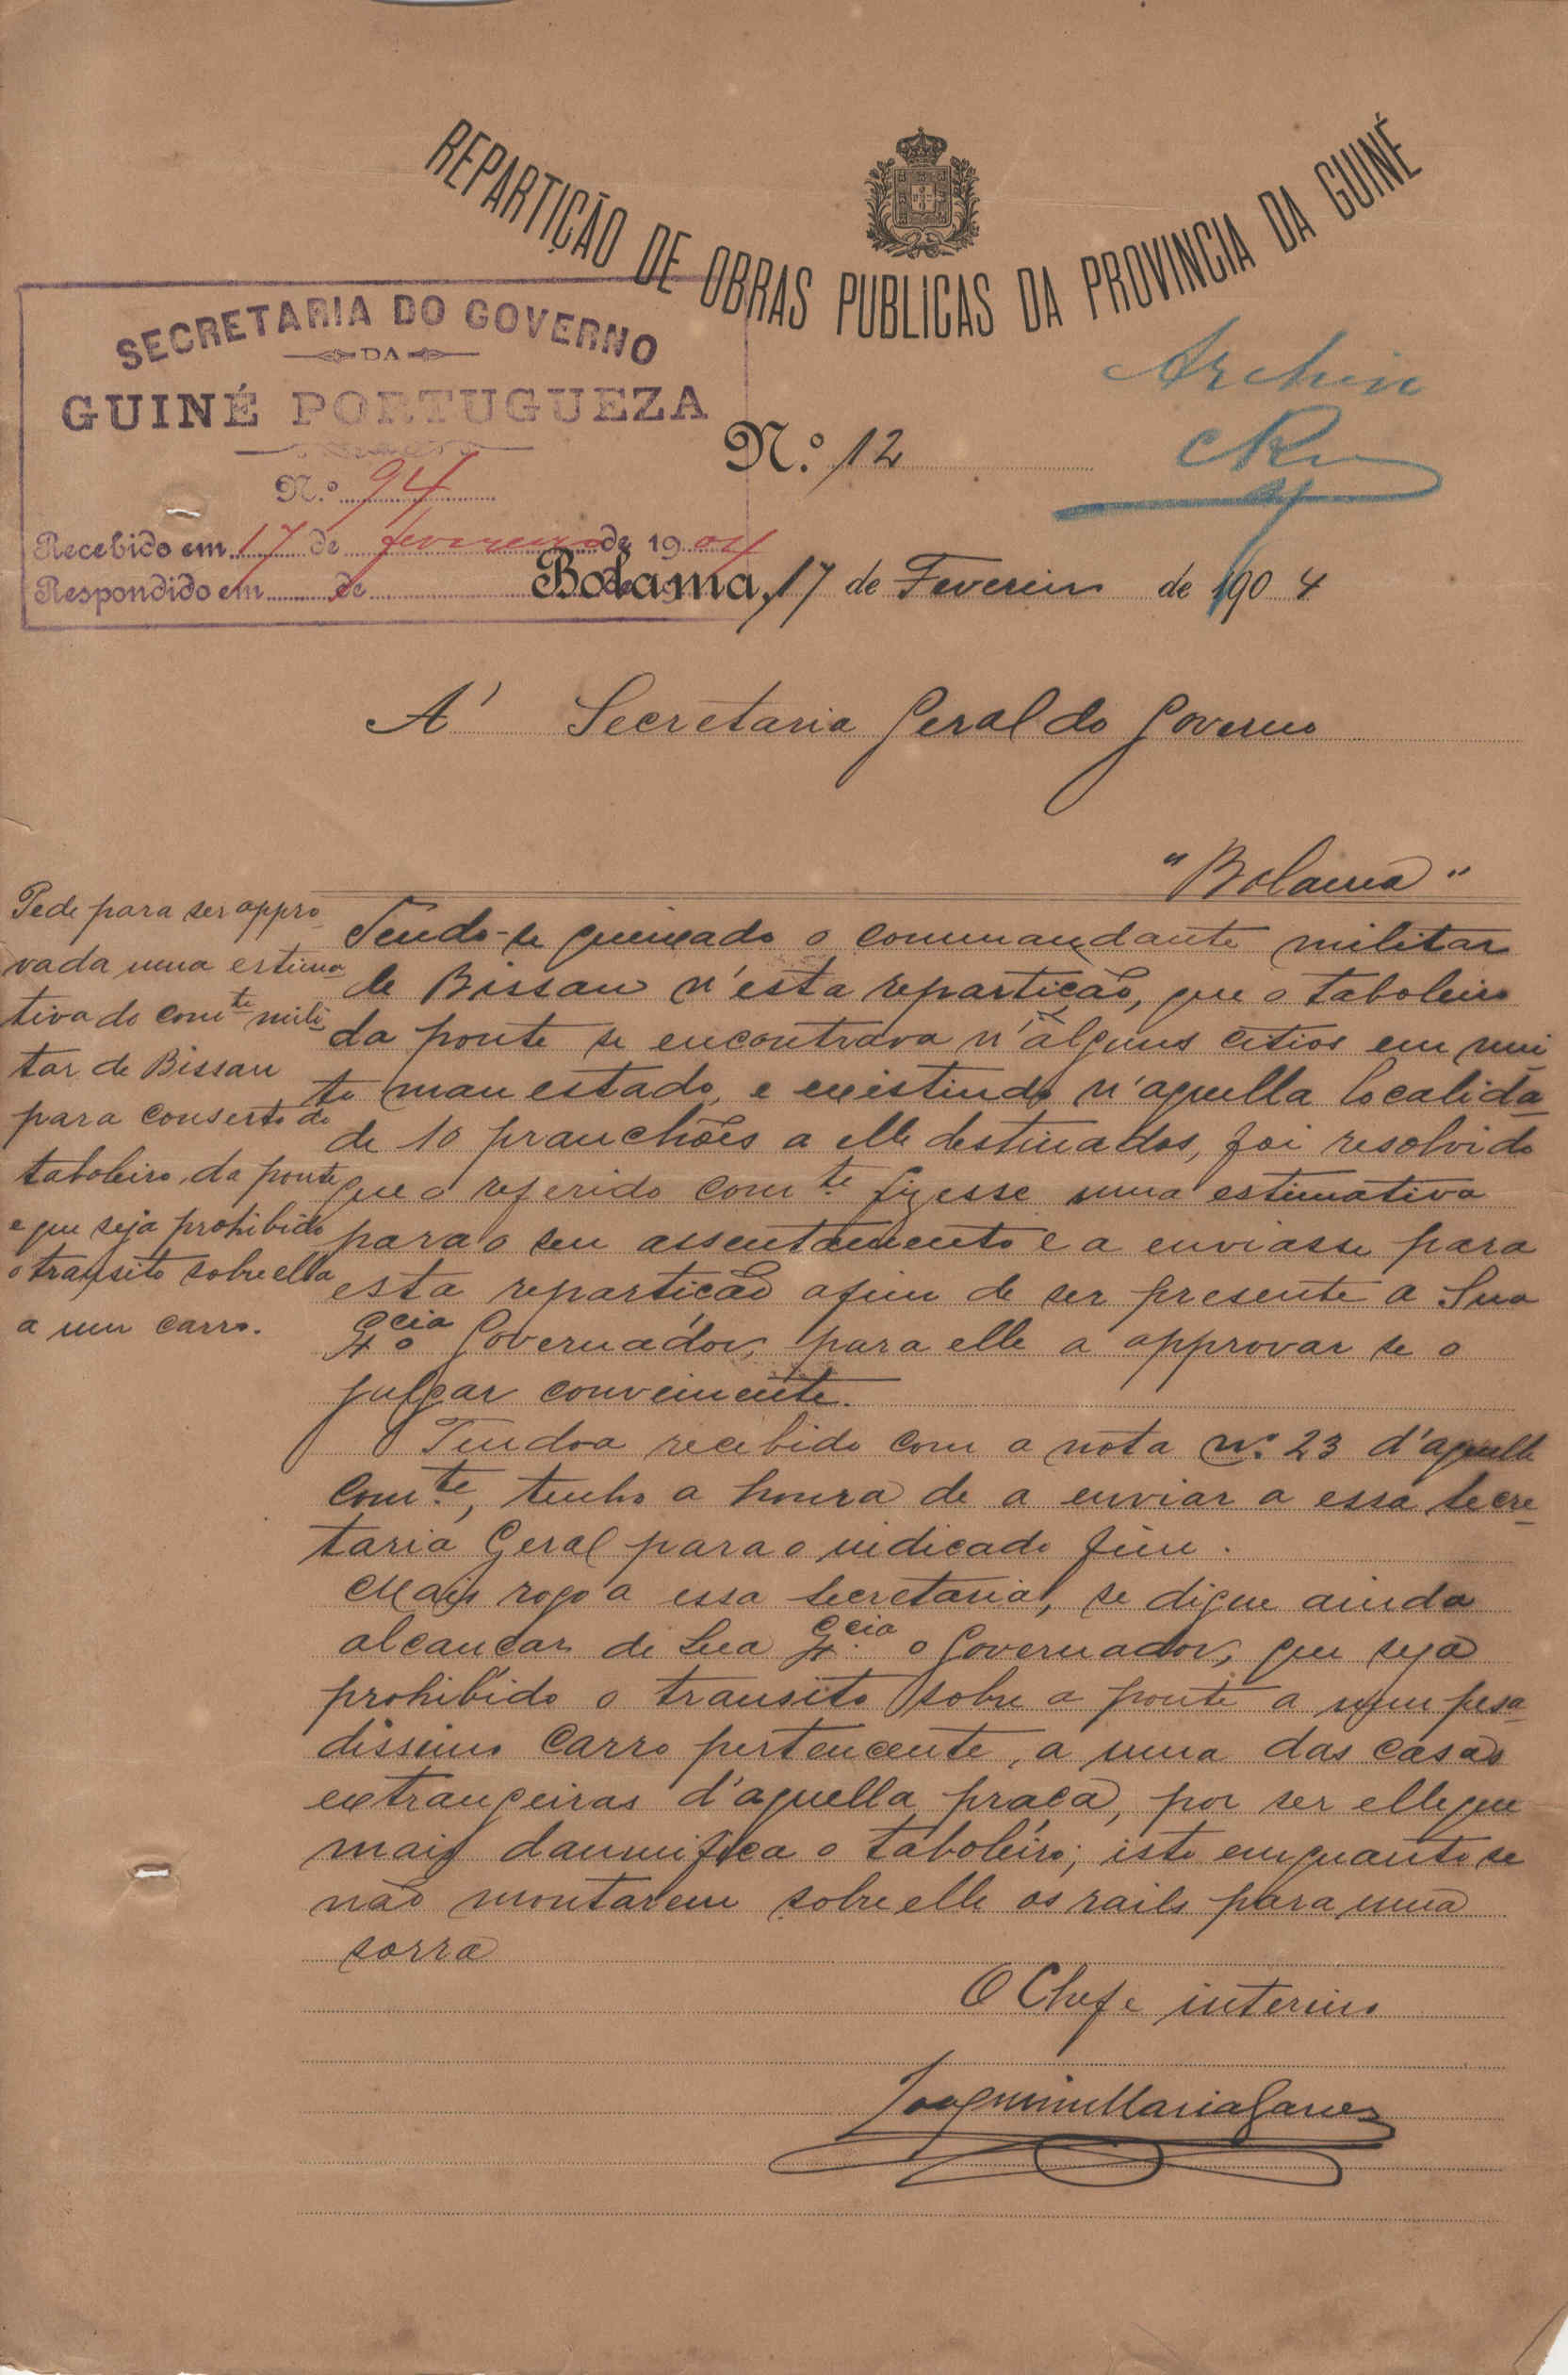 REPARTIÇÃO DE OBRAS PUBLICAS DA PROVINCIA DA GUINÉ
SECRETARIA DO GOVERNO
DA
GUINÉ PORTUGUEZA
N.º 94
Recebido em 17 de fevereiro de 1904
Respondido em de
Archive
N.º 12
Bolama, 17 de Fevereiro de 1904
A' Secretaria Geral do Governo
"Bolama"
Pede para ser appro-
vada uma estima-
tiva do com.te mili-
tar de Bissau
para conserto do
taboleiro da ponte
e que seja prohibido
o transito sobre ella
a um carro.
Tendo-se queixado o commandante militar
de Bissau n'esta repartição, que o taboleiro
da ponte se encontrava n'alguns citios em mui
to mau estado, e existindo n'aquella localida-
de 10 pranchões a elle destinados, foi resolvido
que o referido com.te fizesse uma estimativa
para o seu assentamento e a enviasse para
esta repartição afim de ser presente a Sua
Ex.cia o Governador, para elle a approvar se o
julgar conveniente.
Tendo-a recebido com a nota n.º 23 d'aquelle
com.te, tenho a honra de a enviar a essa Secre-
taria Geral para o indicado fim.
Mais rogo a essa Secretaria, se digne ainda
alcançar de Sua Ex.cia o Governador, que seja
prohibido o transito sobre a ponte a um pesa-
dissimo carro pertencente, a uma das casas
extrangeiras d'aquella praça, por ser elle que
mais damnifica o taboleiro; isto emquanto se
não montarem sobre elle os rails para uma
zorra
O Chefe interino
Joaquim Maria Garcez